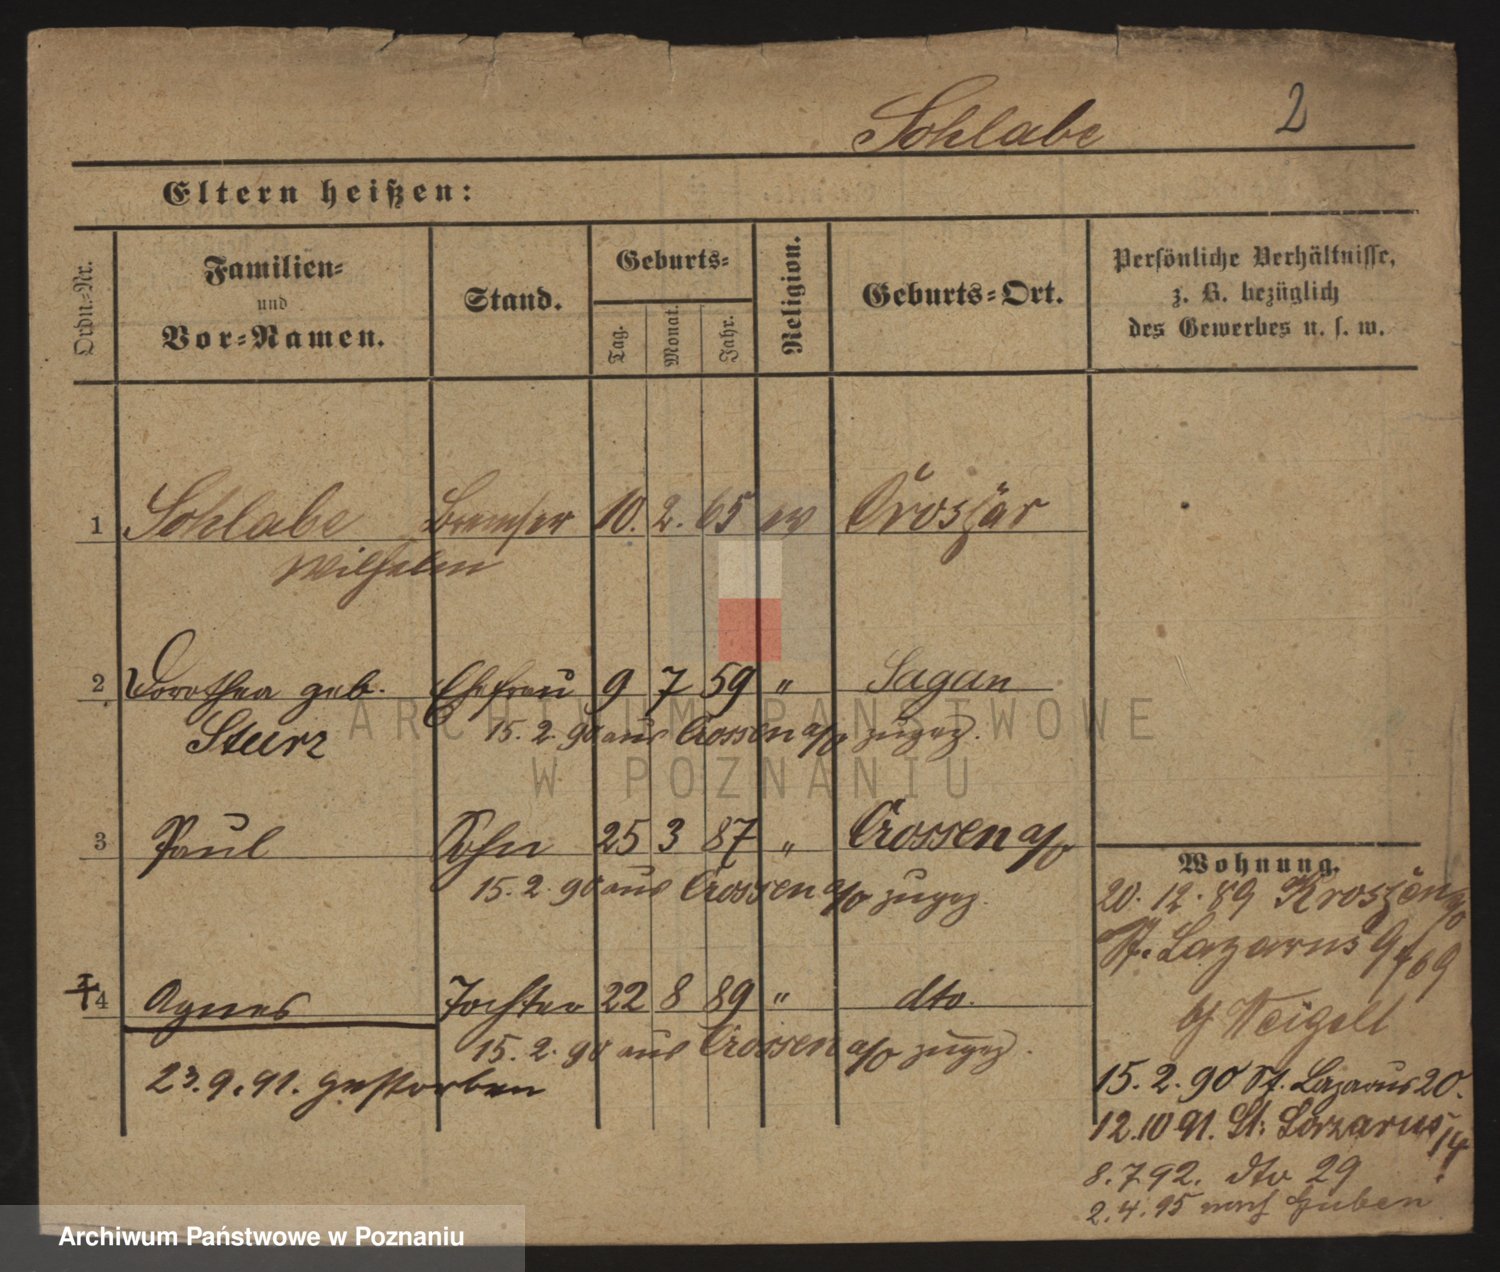 Sohlabe 2
Eltern heißen:
Ordn.-Nr.
Familien-
und
Vor-Namen.
Stand.
Geburts-
Tag.
Monat.
Jahr.
Religion.
Geburts-Ort.
Persönliche Verhältnisse,
z. B. bezüglich
des Gewerbes u. s. w.
1 Sohlabe Bremser 10. 2. 65 ev
Wilhelm
2 Dorothea geb. Ehefrau 9 7 59 " Sagan
Sturz 15. 2. 90 aus Crossen a/o zugez.
3 Paul Sohn 25 3 87 " Crossen a/o
15. 2. 90 aus Crossen a/o zugez.
4 Agnes Tochter 22 8 89 " dto.
15. 2. 90 aus Crossen a/o zugez.
23. 9. 91. gestorben
Wohnung.
20. 12. 89
St. Lazarus
b/ Weigelt
15. 2. 90 St. Lazarus 20.
12. 10 91. St. Lazarus 14
8. 7. 92. dto 29
2. 4. 95 nach Guben
ARCHIWUM PAŃSTWOWE
W POZNANIU
Archiwum Państwowe w Poznaniu